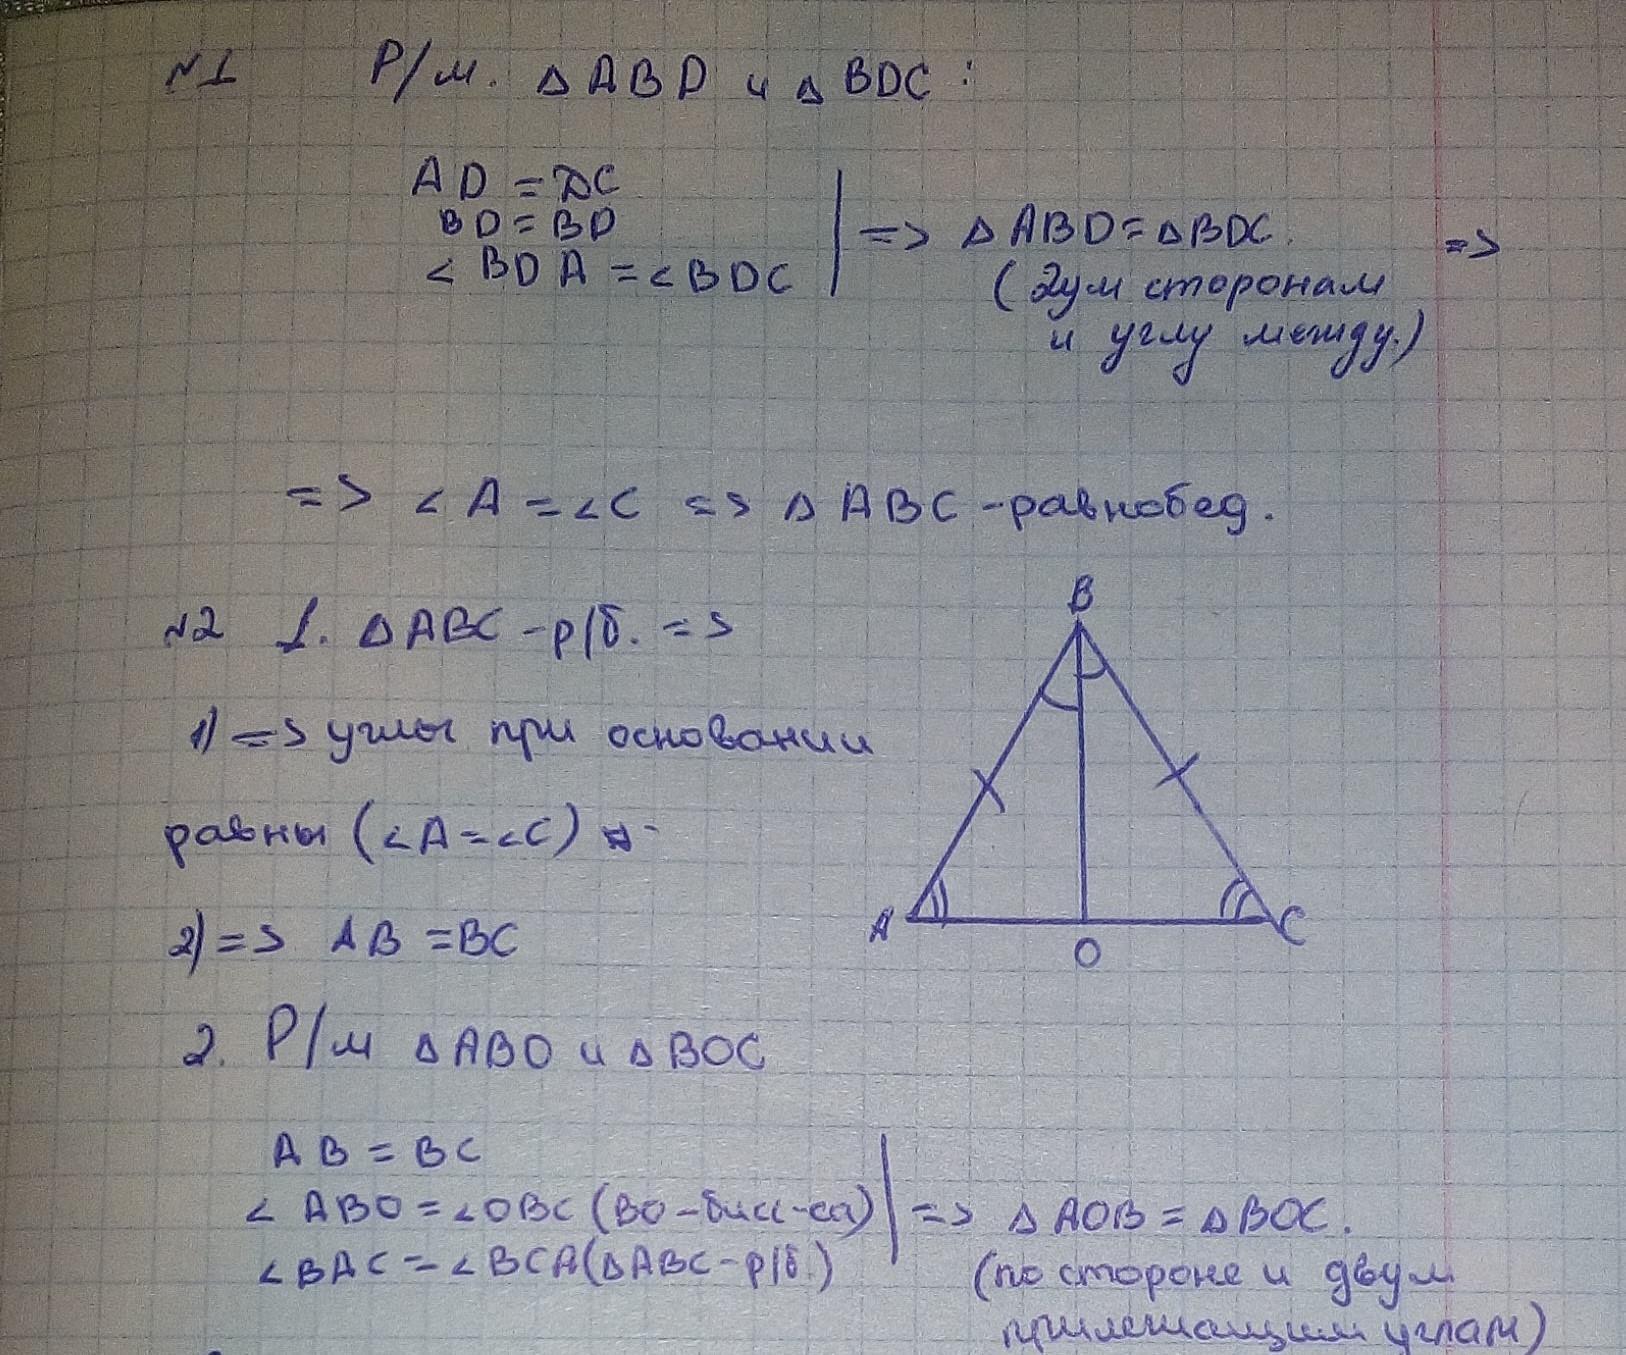 №1 Р/м. △ABD и △BDC:
AD = DC
BD = BD
∠BDA = ∠BDC
=> △ABD = △BDC. =>
(2ум сторонам
и углу между.)
=> ∠A = ∠C => △ABC - равнобед.
№2 1. △ABC - р/б. =>
1) => углы при основании
равны (∠A = ∠C)
2) => AB = BC
B
A
C
O
2. Р/м △ABO и △BOC
AB = BC
∠ABO = ∠OBC (BO - бисс-са)
∠BAC = ∠BCA (△ABC - р/б.)
=> △AOB = △BOC.
(по стороне и двум
прилежащим углам)